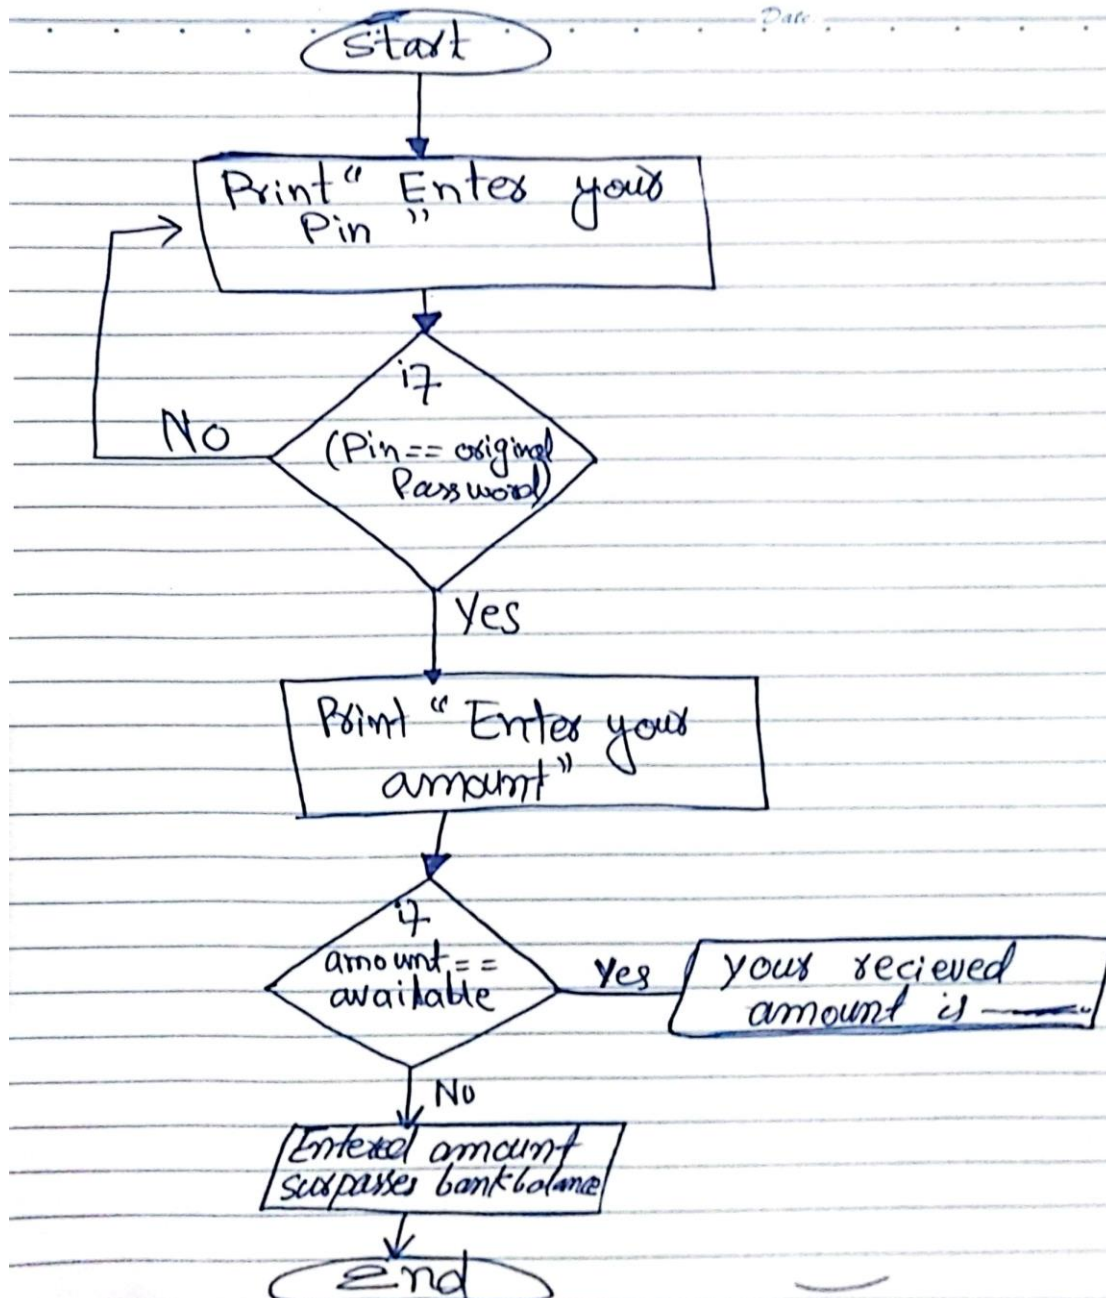 Date
Start
Print " Enter your
Pin "
if
(Pin== original
Password)
No
Yes
Print " Enter your
amount"
if
amount ==
available
Yes
your recieved
amount is ——.
No
Entered amount
surpasses bank balance
End